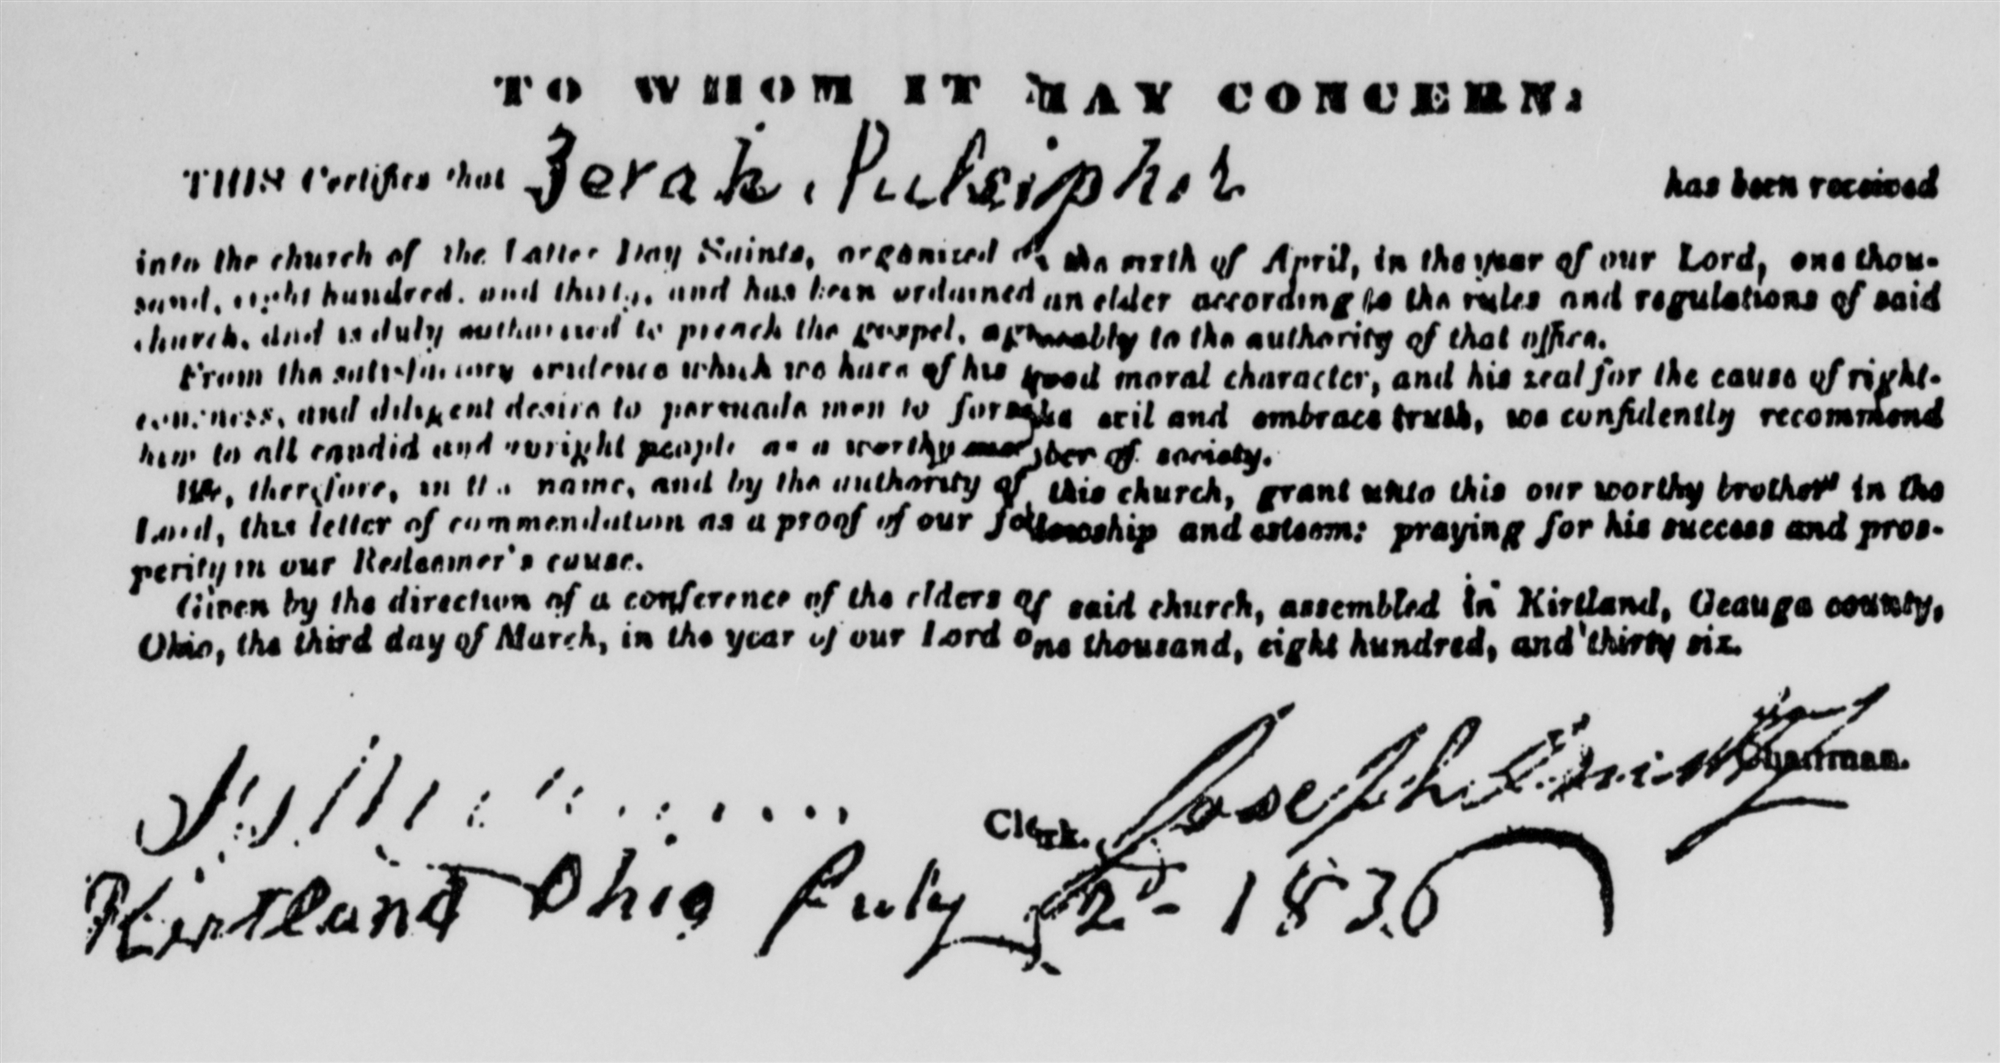 TO WHOM IT MAY CONCERN:
THIS Certifies that Zerah Pulsipher has been received
into the church of the Latter Day Saints, organized on the sixth of April, in the year of our Lord, one thou-
sand, eight hundred, and thirty, and has been ordained an elder according to the rules and regulations of said
church, and is duly authorized to preach the gospel, agreeably to the authority of that office.
From the satisfactory evidence which we have of his good moral character, and his zeal for the cause of right-
eousness, and diligent desire to persuade men to forsake evil and embrace truth, we confidently recommend
him to all candid and upright people as a worthy member of society.
We, therefore, in the name, and by the authority of this church, grant unto this our worthy brother in the
Lord, this letter of commendation as a proof of our fellowship and esteem: praying for his success and pros-
perity in our Redeemer's cause.
Given by the direction of a conference of the elders of said church, assembled in Kirtland, Geauga county,
Ohio, the third day of March, in the year of our Lord one thousand, eight hundred, and thirty six.
Joseph Smith Chairman.
Clerk.
Kirtland Ohio July 2d- 1836